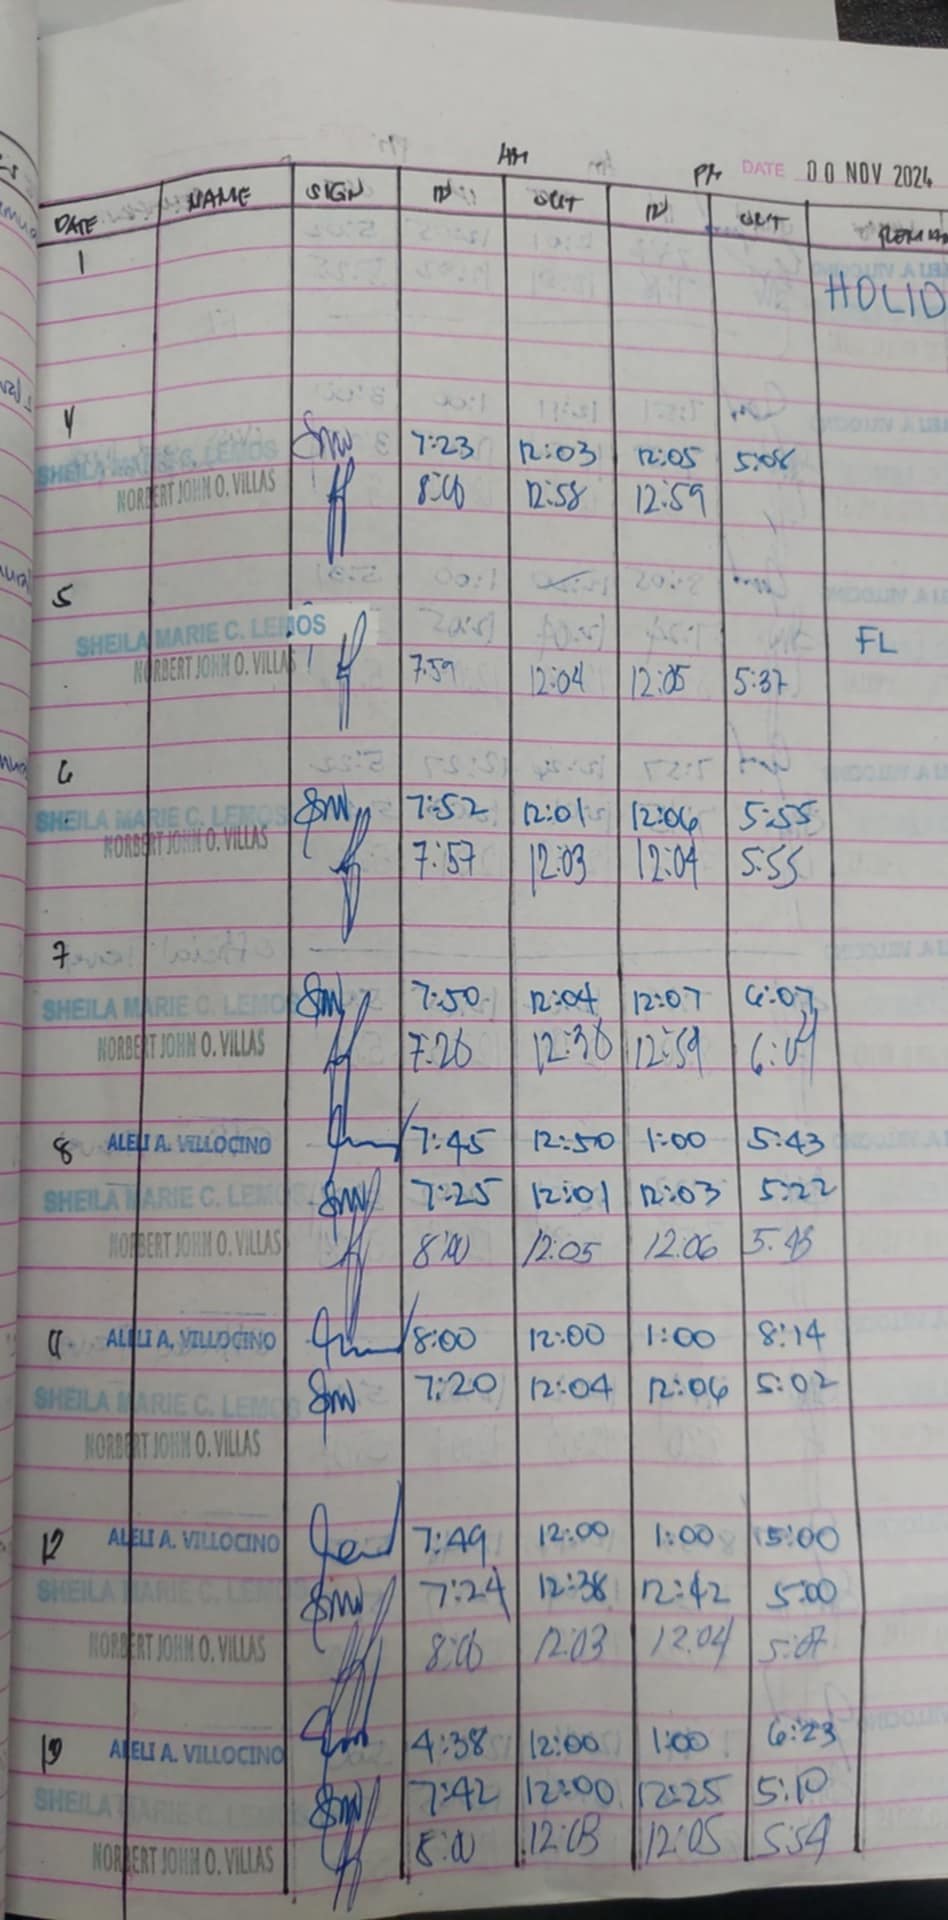 AM PM DATE 00 NOV 2024
DATE NAME SIGN IN OUT IN OUT
1
HOLID
4
SHEILA MARIE C. LEMOS 7:23 12:03 12:05 5:08
NORBERT JOHN O. VILLAS 8:00 12:58 12:59
5
SHEILA MARIE C. LEMOS FL
NORBERT JOHN O. VILLAS 7:59 12:04 12:05 5:37
6
SHEILA MARIE C. LEMOS 7:52 12:01 12:06 5:55
NORBERT JOHN O. VILLAS 7:57 12:03 12:04 5:55
7
SHEILA MARIE C. LEMOS 7:50 12:04 12:07 6:07
NORBERT JOHN O. VILLAS 7:26 12:36 12:59
8 ALELI A. VILLOCINO 7:45 12:50 1:00 5:43
SHEILA MARIE C. LEMOS 7:25 12:01 12:03 5:22
NORBERT JOHN O. VILLAS 8:00 12:05 12:06 5:45
11 ALELI A. VILLOCINO 8:00 12:00 1:00 8:14
SHEILA MARIE C. LEMOS 7:20 12:04 12:06 5:02
NORBERT JOHN O. VILLAS
12 ALELI A. VILLOCINO 7:49 12:00 1:00 5:00
SHEILA MARIE C. LEMOS 7:24 12:38 12:42 5:00
NORBERT JOHN O. VILLAS 8:00 12:03 12:04 5:07
13 ALELI A. VILLOCINO 4:38 12:00 1:00 6:23
SHEILA MARIE C. LEMOS 7:42 12:00 12:25 5:10
NORBERT JOHN O. VILLAS 8:00 12:03 12:05 5:54